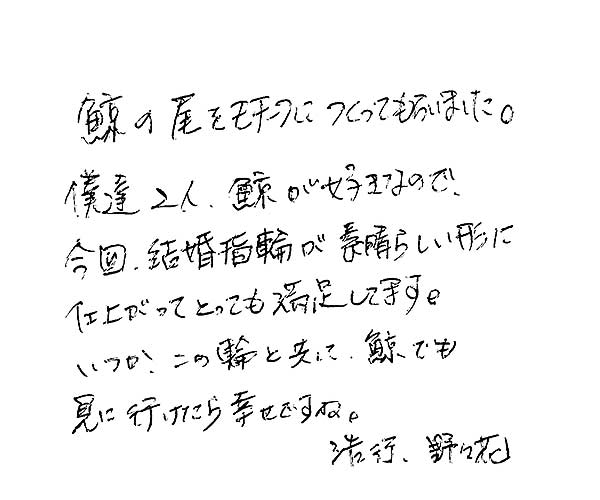 鯨の尾をモチーフに つくってもらいました。
僕達2人、鯨が好きなので、
今回、結婚指輪が素晴らしい形に
仕上がってとっても満足してます。
いつか、この輪と共に、鯨でも
見に行けたら幸せですね。
浩行、野々花